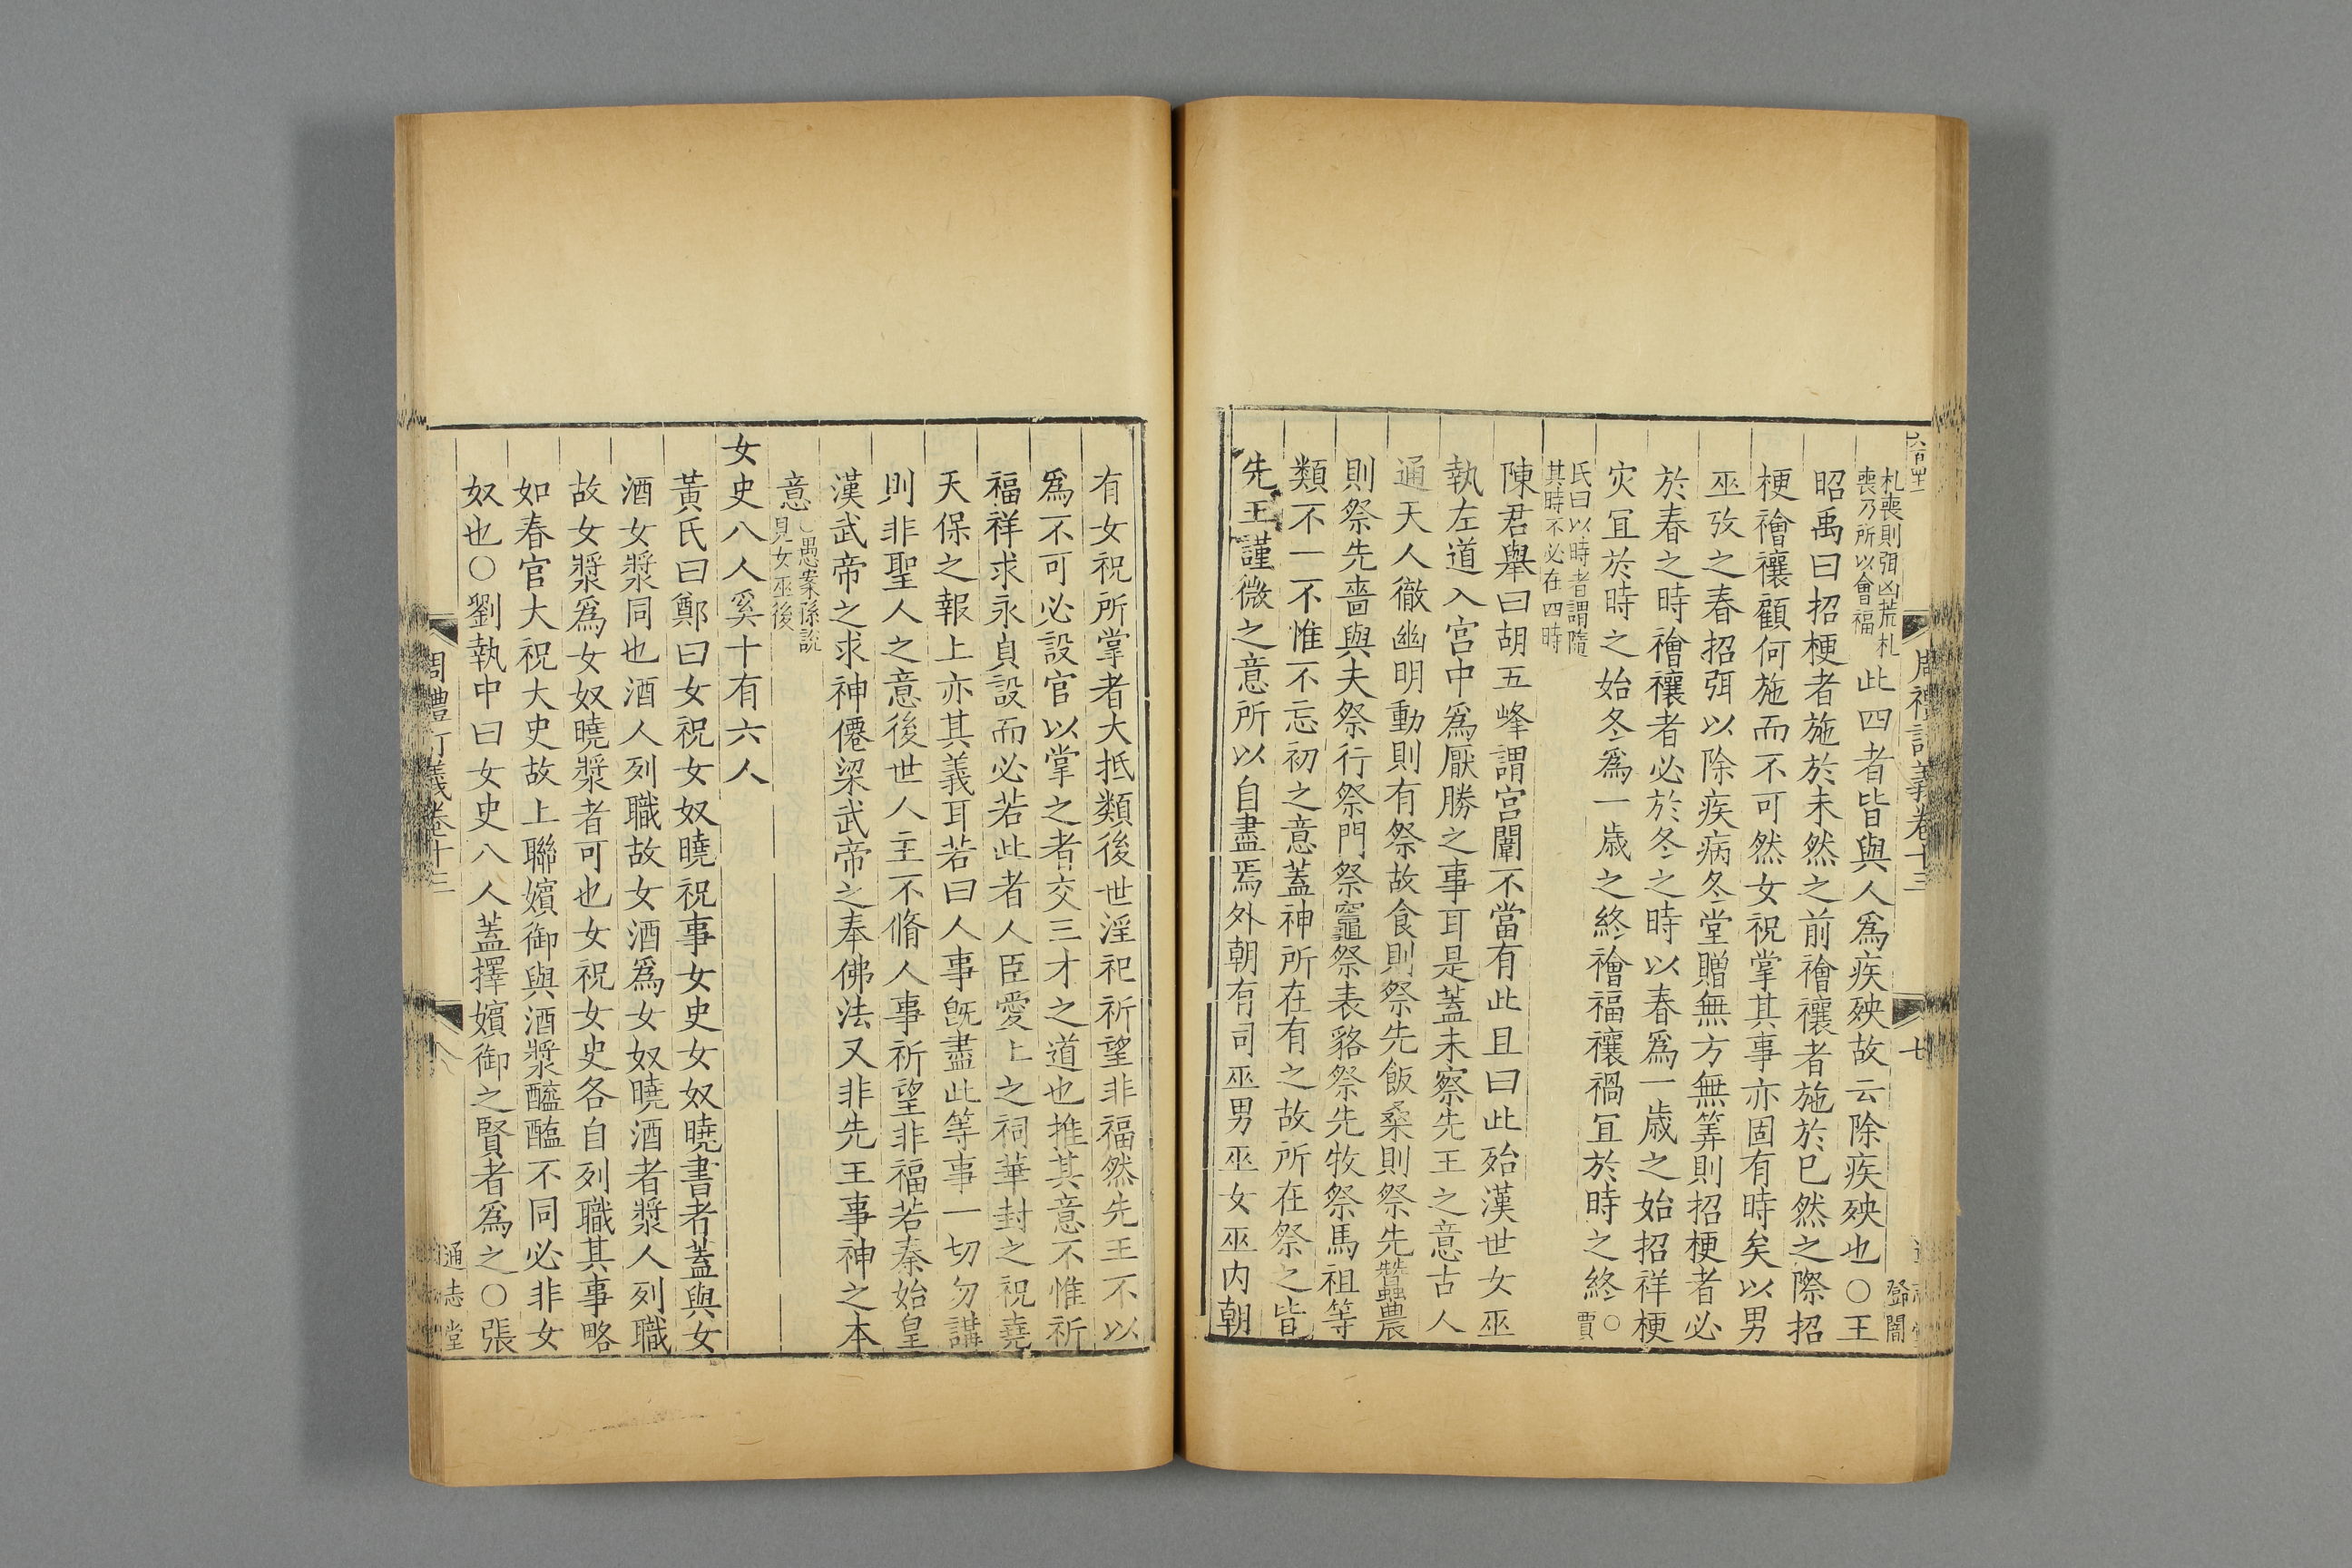 札喪則弭凶荒札
喪乃所以會福
此四者皆與人爲疾殃故云除疾殃也○王
昭禹曰招梗者施於未然之前禬禳者施於已然之際招
梗禬禳顧何施而不可然女祝掌其事亦固有時矣以男
巫攷之春招弭以除疾病冬堂贈無方無筭則招梗者必
於春之時禬禳者必於冬之時以春爲一歳之始招祥梗
灾冝於時之始冬爲一歳之終禬福禳禍冝於時之終○賈
氏曰以時者謂隨
其時不必在四時
陳君舉曰胡五峰謂宫闈不當有此且曰此殆漢世女巫
執左道入宫中爲厭勝之事耳是蓋未察先王之意古人
通天人徹幽明動則有祭故食則祭先飯桑則祭先蠶農
則祭先嗇與夫祭行祭門祭竈祭表貉祭先牧祭馬祖等
類不一不惟不忘初之意蓋神所在有之故所在祭之皆
先王謹微之意所以自盡焉外朝有司巫男巫女巫内朝
周禮訂義卷十三
七
鄧闇
有女祝所掌者大抵類後世淫祀祈望非福然先王不以
爲不可必設官以掌之者交三才之道也推其意不惟祈
福祥求永貞設而必若此者人臣愛上之祠華封之祝堯
天保之報上亦其義耳若曰人事旣盡此等事一切勿講
則非聖人之意後世人主不脩人事祈望非福若秦始皇
漢武帝之求神僊梁武帝之奉佛法又非先王事神之本
意
○愚案孫說
見女巫後
女史八人奚十有六人
黃氏曰鄭曰女祝女奴曉祝事女史女奴曉書者蓋與女
酒女漿同也酒人列職故女酒爲女奴曉酒者漿人列職
故女漿爲女奴曉漿者可也女祝女史各自列職其事略
如春官大祝大史故上聯嬪御與酒漿醯醢不同必非女
奴也○劉執中曰女史八人蓋擇嬪御之賢者爲之○張
周禮訂義卷十三
八
通志堂